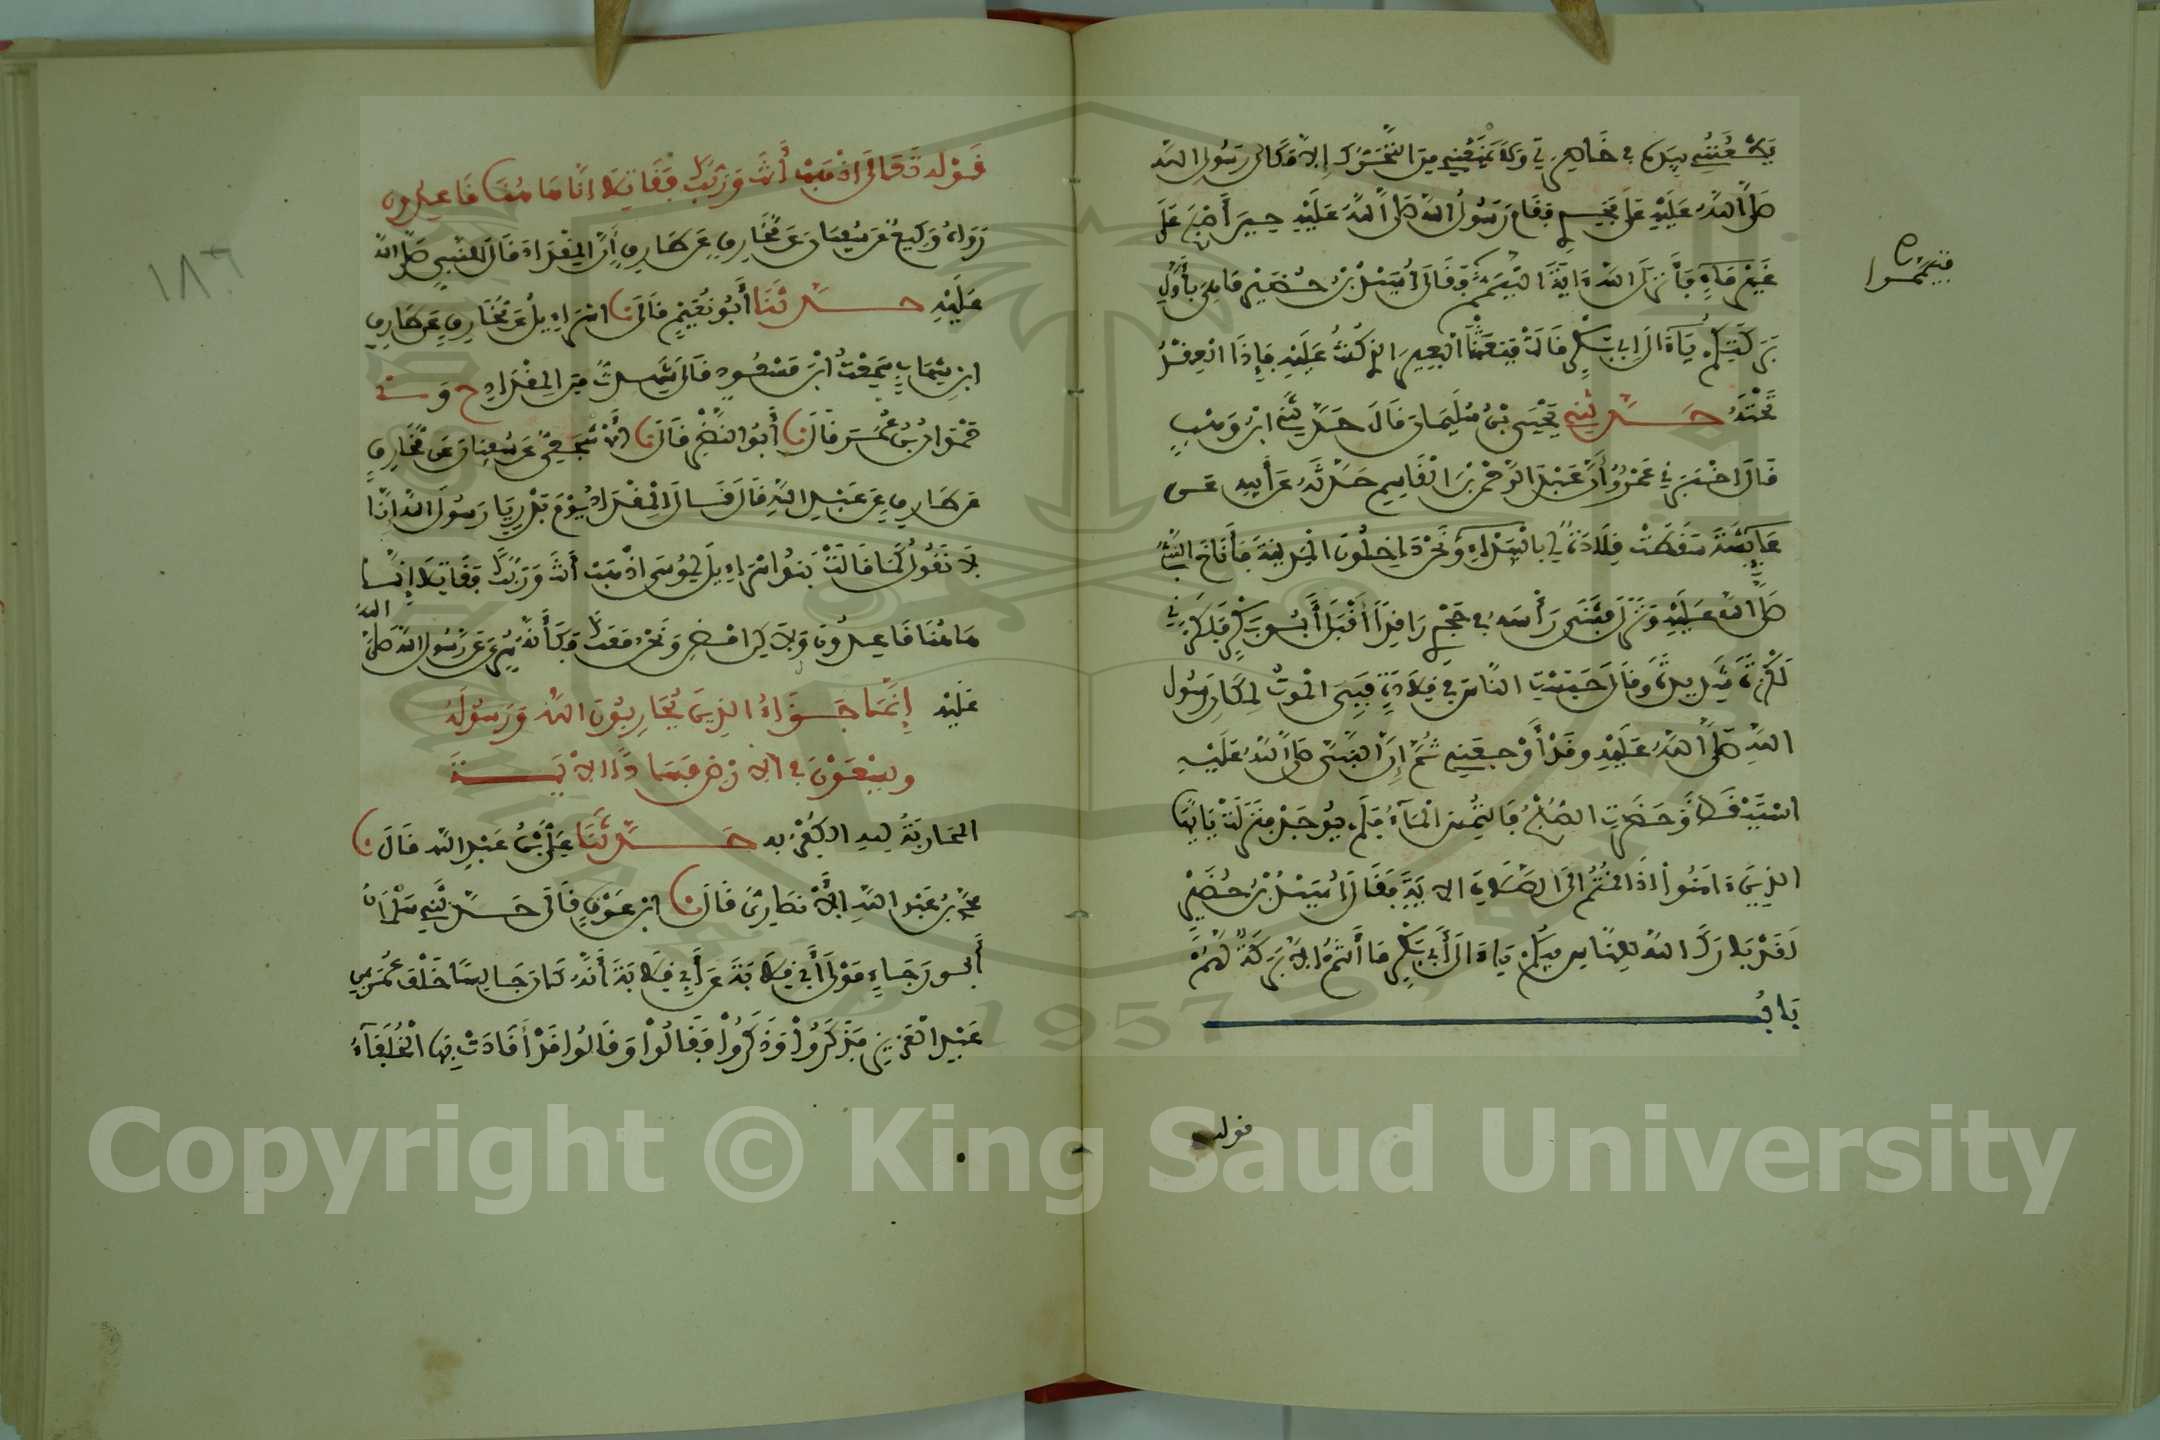 يطعنني بيده في خاصرتي ولا يمنعني من التحرك إلا مكان رسول الله
صلى الله عليه على فخذي فقام رسول الله صلى الله عليه حين أصبح على
غير ماء فأنزل الله ءاية التيمم فقال أسيد بن حضير ما هي بأول
فتيمموا
بركتكم يا ءال ابي بكر قالت فبعثنا البعير الذي كنت عليه فإذا العقد
تحته حدثني يحيى بن سليمان قال حدثني ابن وهب
قال اخبرني عمرو أن عبد الرحمن بن القاسم حدثه عن أبيه عن
عايشة سقطت قلادة لي بالبيداء ونحن داخلون المدينة فأناخ النبي
صلى الله عليه ونزل فثنى رأسه في حجري راقدا أقبل أبو بكر فلكزني
لكزة شديدة وقال حبست الناس في قلادة فبي الموت لمكان رسول
الله صلى الله عليه وقد أوجعني ثم إن النبي صلى الله عليه
استيقظ وحضرت الصبح فالتمس الماء فلم يوجد فنزلت يا أيها
الذين ءامنوا إذا قمتم الى الصلاة الاية فقال أسيد بن حضير
لقد بارك الله للناس فيكم ياءال أبي بكر ما أنتم إلا بركة لهم
باب
قوله
قوله تعالى اذهب أنت وربك فقاتلا انا هاهنا قاعدون
رواه وكيع عن سفيان عن مخارق عن طارق أن المقداد قال للنبي صلى الله
عليه حدثنا أبو نعيم قال نا اسراءيل عن مخارق عن طارق
ابن شهاب سمعت ابن مسعود قال شهدت من المقداد ح و
حمدان بن عمر قال نا أبو النضر قال نا الأشجعي عن سفيان عن مخارق
عن طارق عن عبد الله قال قال المقداد يوم بدر يا رسول الله انا
لا نقول كما قالت بنوا اسراءيل لموسى اذهب أنت وربك فقاتلا إنا
هاهنا قاعدون ولاكن امض ونحن معك فكأنه سري عن رسول الله صلى الله
عليه إنما جزاء الذين يحاربون الله ورسوله
ويسعون في الارض فسادا الاية
المحاربة لله الكفر به حدثنا علي بن عبد الله قال نا
محمد بن عبد الله الأنصاري قال نا ابن عون قال حدثني سلمان
أبو رجاء مولى أبي قلابة عن أبي قلابة أنه كان جالسا خلف عمر بن
عبد العزيز فذكروا وذكروا فقالوا وقالوا قد أقادت بها الخلفاء
١٨٦
Copyright © King Saud University
1957